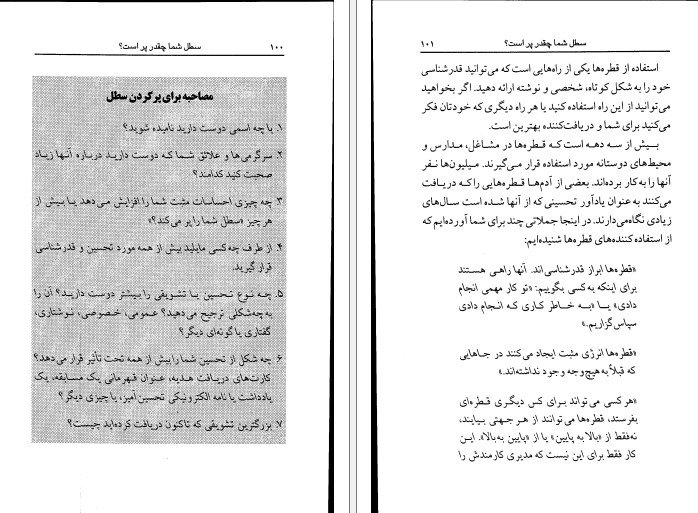 سطل شما چقدر پر است؟ ۱۰۰
مصاحبه برای پر کردن سطل
۱. با چه اسمی دوست دارید نامیده شوید؟
۲. سرگرمی‌ها و علائق شما که دوست دارید درباره آنها زیاد
صحبت کنید کدامند؟
۳. چه چیزی احساسات مثبت شما را افزایش می‌دهد یا بیش از
هر چیز «سطل شما را پر می‌کند؟»
۴. از طرف چه کسی مایلید بیش از همه مورد تحسین و قدرشناسی
قرار گیرید.
۵. چه نوع تحسین یا تشویقی را بیشتر دوست دارید؟ آن را
به چه شکلی ترجیح می‌دهید؟ عمومی، خصوصی، نوشتاری،
گفتاری یا گونه‌ای دیگر؟
۶. چه شکل از تحسین شما را بیش از همه تحت تأثیر قرار می‌دهد؟
کارت‌های دریافت هدیه، عنوان قهرمانی یک مسابقه، یک
یادداشت یا نامه الکترونیکی تحسین آمیز، یا چیزی دیگر؟
۷. بزرگترین تشویقی که تاکنون دریافت کرده‌اید چیست؟
سطل شما چقدر پر است؟ ۱۰۱
استفاده از قطره‌ها یکی از راه‌هایی است که می‌توانید قدرشناسی
خود را به شکل کوتاه، شخصی و نوشته ارائه دهید. اگر بخواهید
می‌توانید از این راه استفاده کنید یا هر راه دیگری که خودتان فکر
می‌کنید برای شما و دریافت‌کننده بهترین است.
بیش از سه دهه است که قطره‌ها در مشاغل، مدارس و
محیط‌های دوستانه مورد استفاده قرار می‌گیرند. میلیون‌ها نفر
آنها را به کار برده‌اند. بعضی از آدم‌ها قطره‌هایی را که دریافت
می‌کنند به عنوان یادآور تحسینی که از آنها شده است سال‌های
زیادی نگاه می‌دارند. در اینجا جملاتی چند برای شما آورده‌ایم که
از استفاده کننده‌های قطره‌ها شنیده‌ایم:
«قطره‌ها ابراز قدرشناسی‌اند. آنها راهی هستند
برای اینکه به کسی بگوییم: «تو کار مهمی انجام
دادی» یا «به خاطر کاری که انجام دادی
سپاس‌گزاریم.»
«قطره‌ها انرژی مثبت ایجاد می‌کنند در جاهایی
که قبلاً به هیچ وجه وجود نداشته‌اند.»
«هر کسی می‌تواند برای کس دیگری قطره‌ای
بفرستد، قطره‌ها می‌توانند از هر جهتی بیایند،
نه فقط از «بالا به پایین» یا از «پایین به بالا». این
کار فقط برای این نیست که مدیری کارمندش را